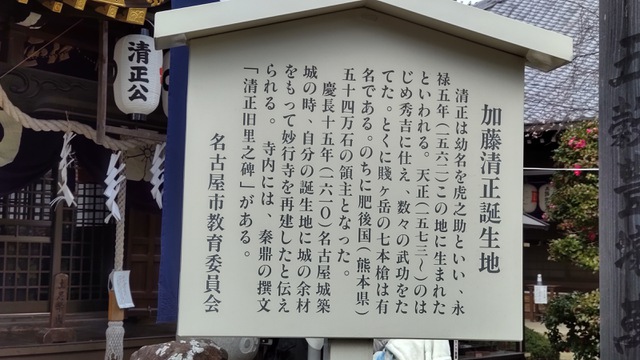 加藤清正誕生地
清正は幼名を虎之助といい、永
禄五年(一五六二)この地に生まれた
といわれる。天正(一五七三〜)のは
じめ秀吉に仕え、数々の武功をた
てた。とくに賤ヶ岳の七本槍は有
名である。のちに肥後国(熊本県)
五十四万石の領主となった。
慶長十五年(一六一〇)名古屋城築
城の時、自分の誕生地に城の余材
をもって妙行寺を再建したと伝え
られる。寺内には、秦鼎の撰文
「清正旧里之碑」がある。
名古屋市教育委員会
清正公